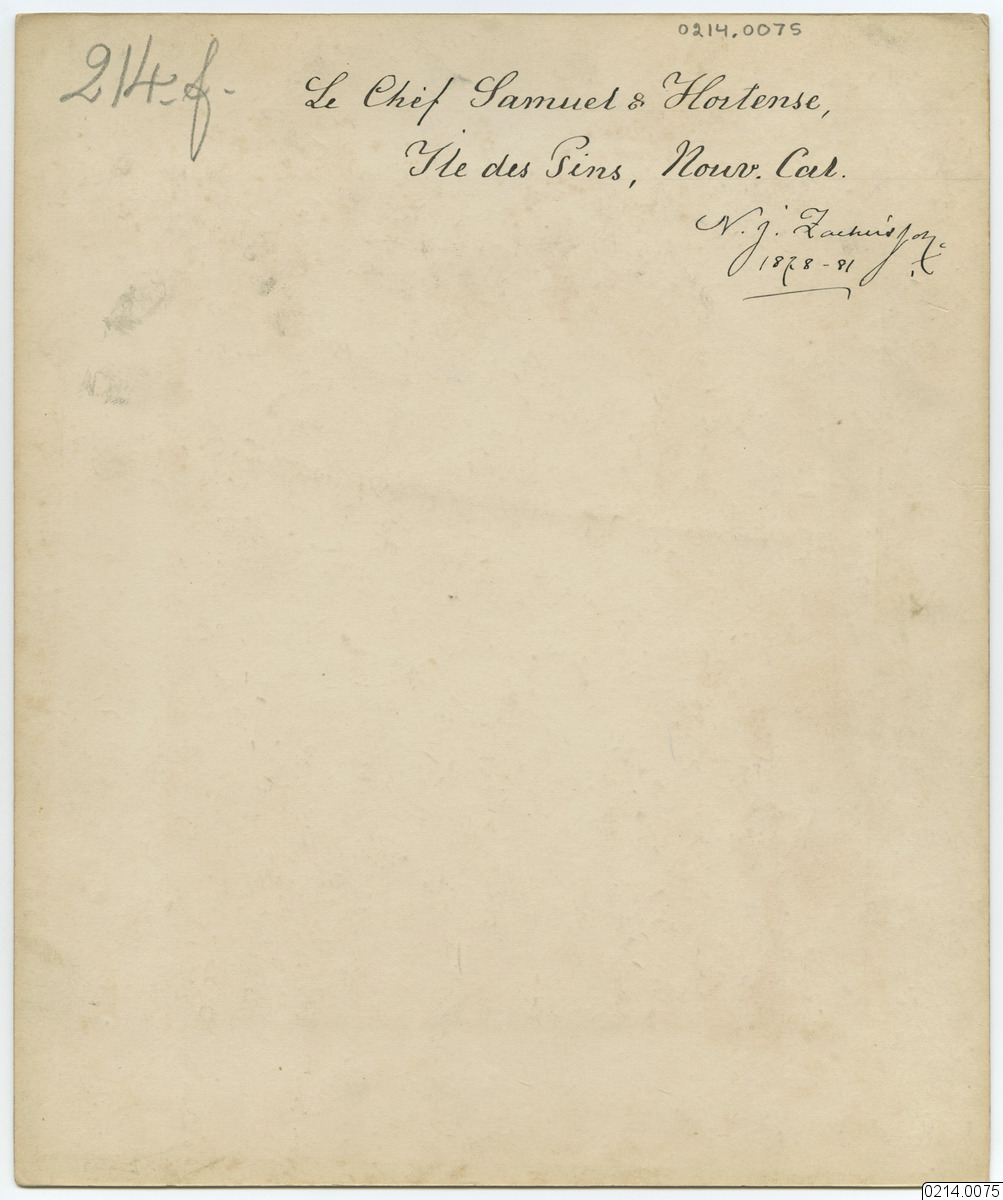 0214.0075
214.f.
Le Chef Samuel & Hortense,
Ile des Pins, Nouv. Cal.
N. J.
1878-81
0214.0075